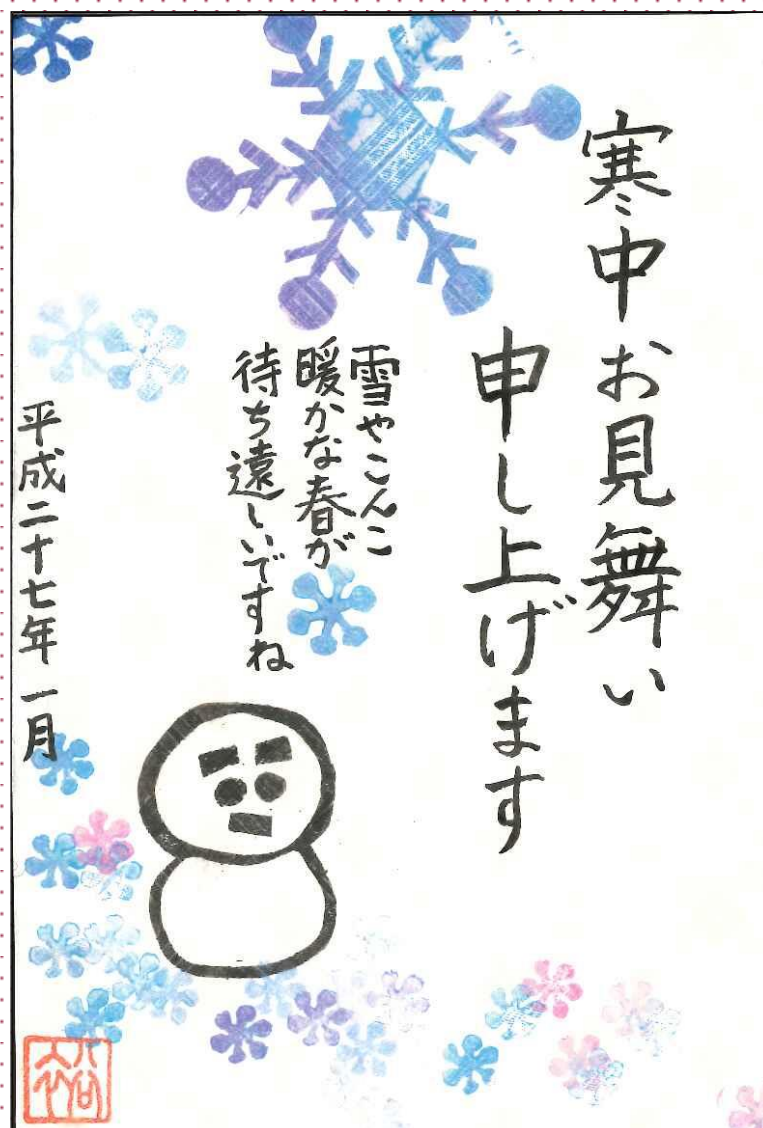 寒中お見舞い
申し上げます
雪やこんこ
暖かな春が
待ち遠しいですね
平成二十七年一月
裕